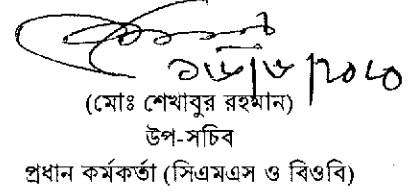 (মোঃ শেখাবুর রহমান)
উপ-সচিব
প্রধান কর্মকর্তা (সিএমএস ও বিওবি)